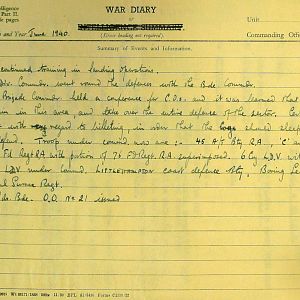 WAR DIARY
or
INTELLIGENCE SUMMARY
(Erase heading not required).
Intelligence
Part II.
title pages
Unit
Commanding Offi
and Year June 1940.
Summary of Events and Information.
continued training in landing operations.
Div. Commdr. went round the defences with the Bde Commdr.
Brigade Commdr held a conference for C.Os. and it was learned that
in this area, and take over the entire defence of the sector.
with regard to billeting, in view that the troops should sleep
defend. Troops under command now are :- 45 A/T Bty R.A, 'C' and
Fd Regt RA with portion of 76 Fd Regt R.A. superimposed. 6 Coy L.D.V. with
L.D.V under Command. LITTLEHAMPTON coast defence Bty. Boring
Sussex Regt.
Bde. O.O. No 21 issued